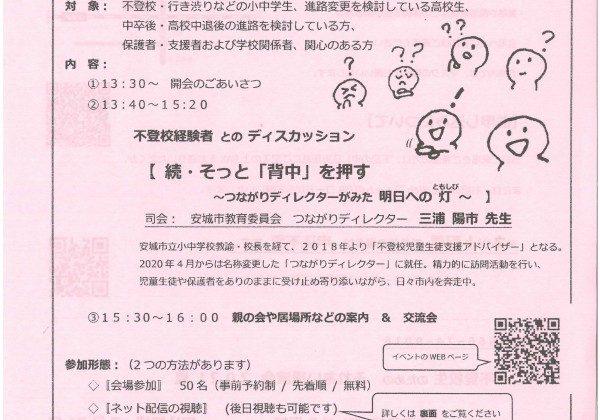 対　象：　不登校・行き渋りなどの小中学生、進路変更を検討している高校生、
中卒後・高校中退後の進路を検討している方、
保護者・支援者および学校関係者、関心のある方
内　容：
①１３：３０～　開会のごあいさつ
②１３：４０～１５：２０
不登校経験者 との ディスカッション
【 続・そっと「背中」を押す
～つながりディレクターがみた 明日への 灯 ～　】
ともしび
司会：　安城市教育委員会　つながりディレクター　三浦 陽市 先生
安城市立小中学校教諭・校長を経て、２０１８年より「不登校児童生徒支援アドバイザー」となる。
2020 年４月からは名称変更した「つながりディレクター」に就任。精力的に訪問活動を行い、
児童生徒や保護者をありのままに受け止め寄り添いながら、日々市内を奔走中。
③１５：３０～１６：００　親の会や居場所などの案内　＆　交流会
イベントの WEB ページ
参加形態：（２つの方法があります）
◇〖会場参加〗　50 名（事前予約制 / 先着順 / 無料）
◇〖ネット配信の視聴〗　（後日視聴も可能です）
詳しくは 裏面 をご覧ください